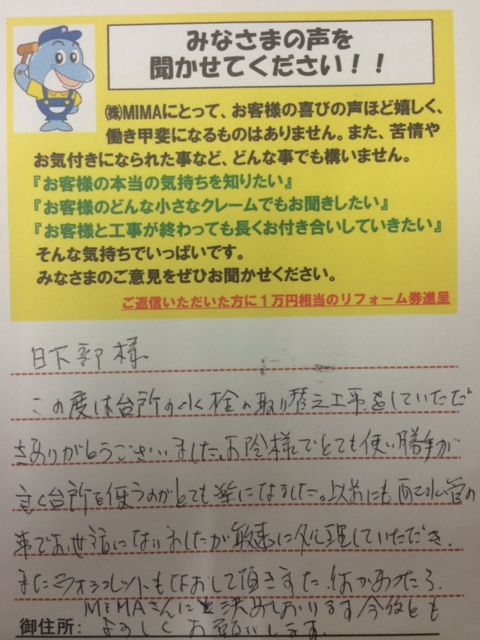 みなさまの声を
聞かせてください！！
㈱MIMAにとって、お客様の喜びの声ほど嬉しく、
働き甲斐になるものはありません。また、苦情や
お気付きになられた事など、どんな事でも構いません。
『お客様の本当の気持ちを知りたい』
『お客様のどんな小さなクレームでもお聞きしたい』
『お客様と工事が終わっても長くお付き合いしていきたい』
そんな気持ちでいっぱいです。
みなさまのご意見をぜひお聞かせください。
ご返信いただいた方に１万円相当のリフォーム券進呈
日下部様
この度は台所の水栓の取り替え工事をしていただ
きありがとうございました。お陰様でとても使い勝手が
良く台所を使うのがとても楽になりました。以前にも
事でお世話になりましたが敏速に処理していただき、
また して頂きました。何かあったら、
MIMAさんにと決めております今後とも
御住所： よろしくお願いします。